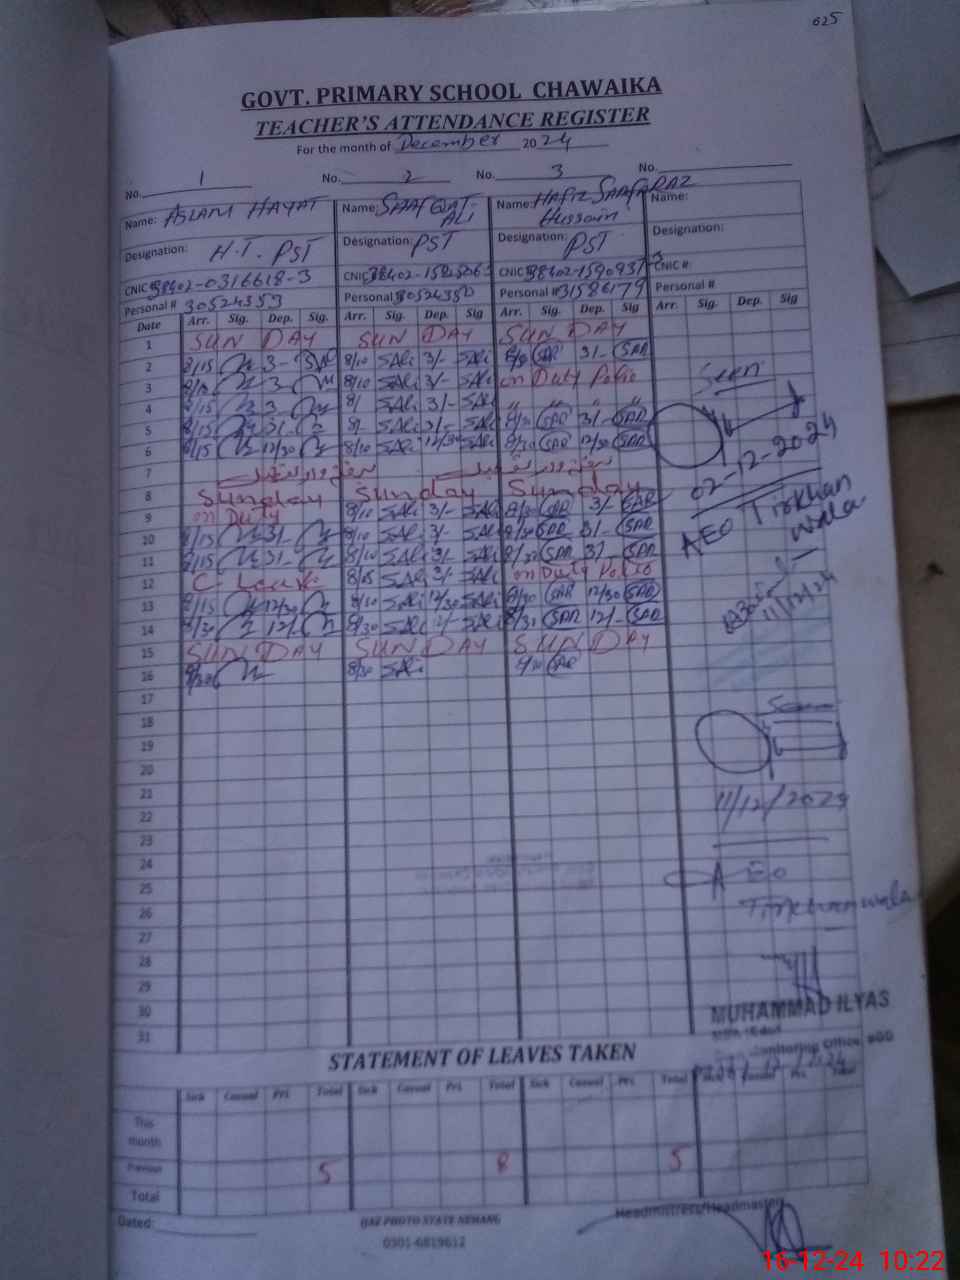 625
GOVT. PRIMARY SCHOOL CHAWAIKA
TEACHER'S ATTENDANCE REGISTER
For the month of December 2024
No. 1 No. 2 No. 3 No.
Name: ASLAM HAYAT Name: SAAFQAT ALI Name: HAFIZ SAAFARAZ Hussain Name:
Designation: H.T. PST Designation: PST Designation: PST Designation:
CNIC# 38402-0316618-3 CNIC 38402- CNIC 38402-1590937-3 CNIC #:
Personal # 30524353 Personal 30524350 Personal # 31586179 Personal #
Date Arr. Sig. Dep. Sig. Arr. Sig. Dep. Sig Arr. Sig. Dep. Sig Arr. Sig. Dep. Sig
1 SUN DAY SUN DAY SUN DAY
2 8/15 3- 8/10 SALi 3/- SALi SAR 3/- SAR
3 3 8/10 SALi 3/- SALi on Duty Polio
4 8/15 3 8/ SALi 3/- SALi " " " "
5 8/15 3/- 8/ SALi 3/- SALi 8/30 SAR 3/- SAR
6 8/15 12/30 8/10 SALi 12/30 SALi 8/30 SAR 12/30 SAR
7
8 Sunday Sunday Sunday
9 on Duty 8/10 SALi 3/- SALi 8/30 SAR 3/- SAR
10 8/15 3/- 8/10 SALi 3/- SALi 8/30 SAR 3/- SAR
11 8/15 3/- 8/10 SALi 3/- SALi 8/30 SAR 3/- SAR
12 C-Leave 8/15 SALi 3/- SALi on Duty Polio
13 8/15 12/30 8/10 SALi 12/30 SALi 8/30 SAR 12/30 SAR
14 8/30 12/- 8/30 SALi 12/- SALi 8/30 SAR 12/- SAR
15 SUN DAY SUN DAY SUN DAY
16 8/30 8/30 SALi SAR
17
18
19
20
21
22
23
24
25
26
27
28
29
30
31
Seen
02-12-2024
AEO Tirkhan wala
11/12/24
Seen
11/12/2024
AEO
Tirkhanwala
MUHAMMAD ILYAS
STATEMENT OF LEAVES TAKEN
Sick Casual Pri. Total Sick Casual Pri. Total Sick Casual Pri. Total Casual Pri. Total
This month
Previous 5 8 5
Total
Dated:
IJAZ PHOTO STATE NEHANG
0301-6819612
Headmistress/Headmaster
16-12-24 10:22